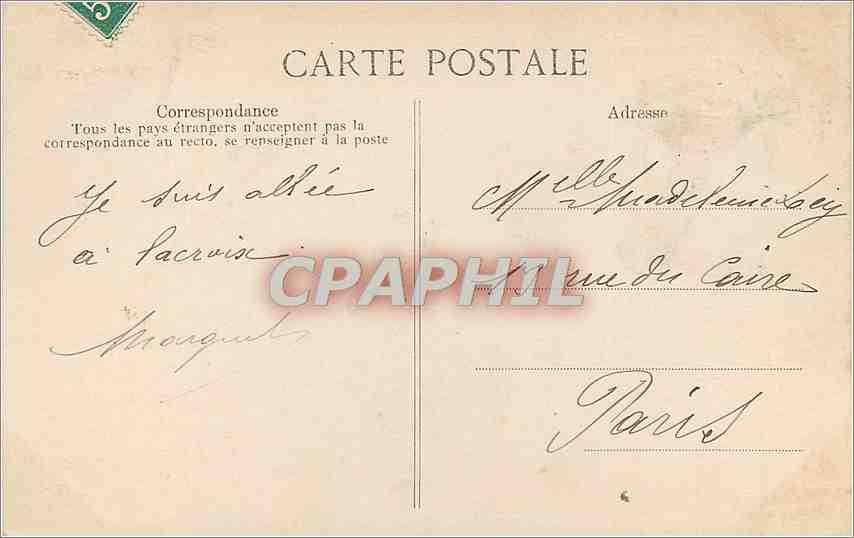 5
CARTE POSTALE
Correspondance
Tous les pays étrangers n'acceptent pas la
correspondance au recto, se renseigner à la poste
Je suis allée
a lacroix.
Adresse
Melle Madeleine
rue du Caire
Paris
CPAPHIL